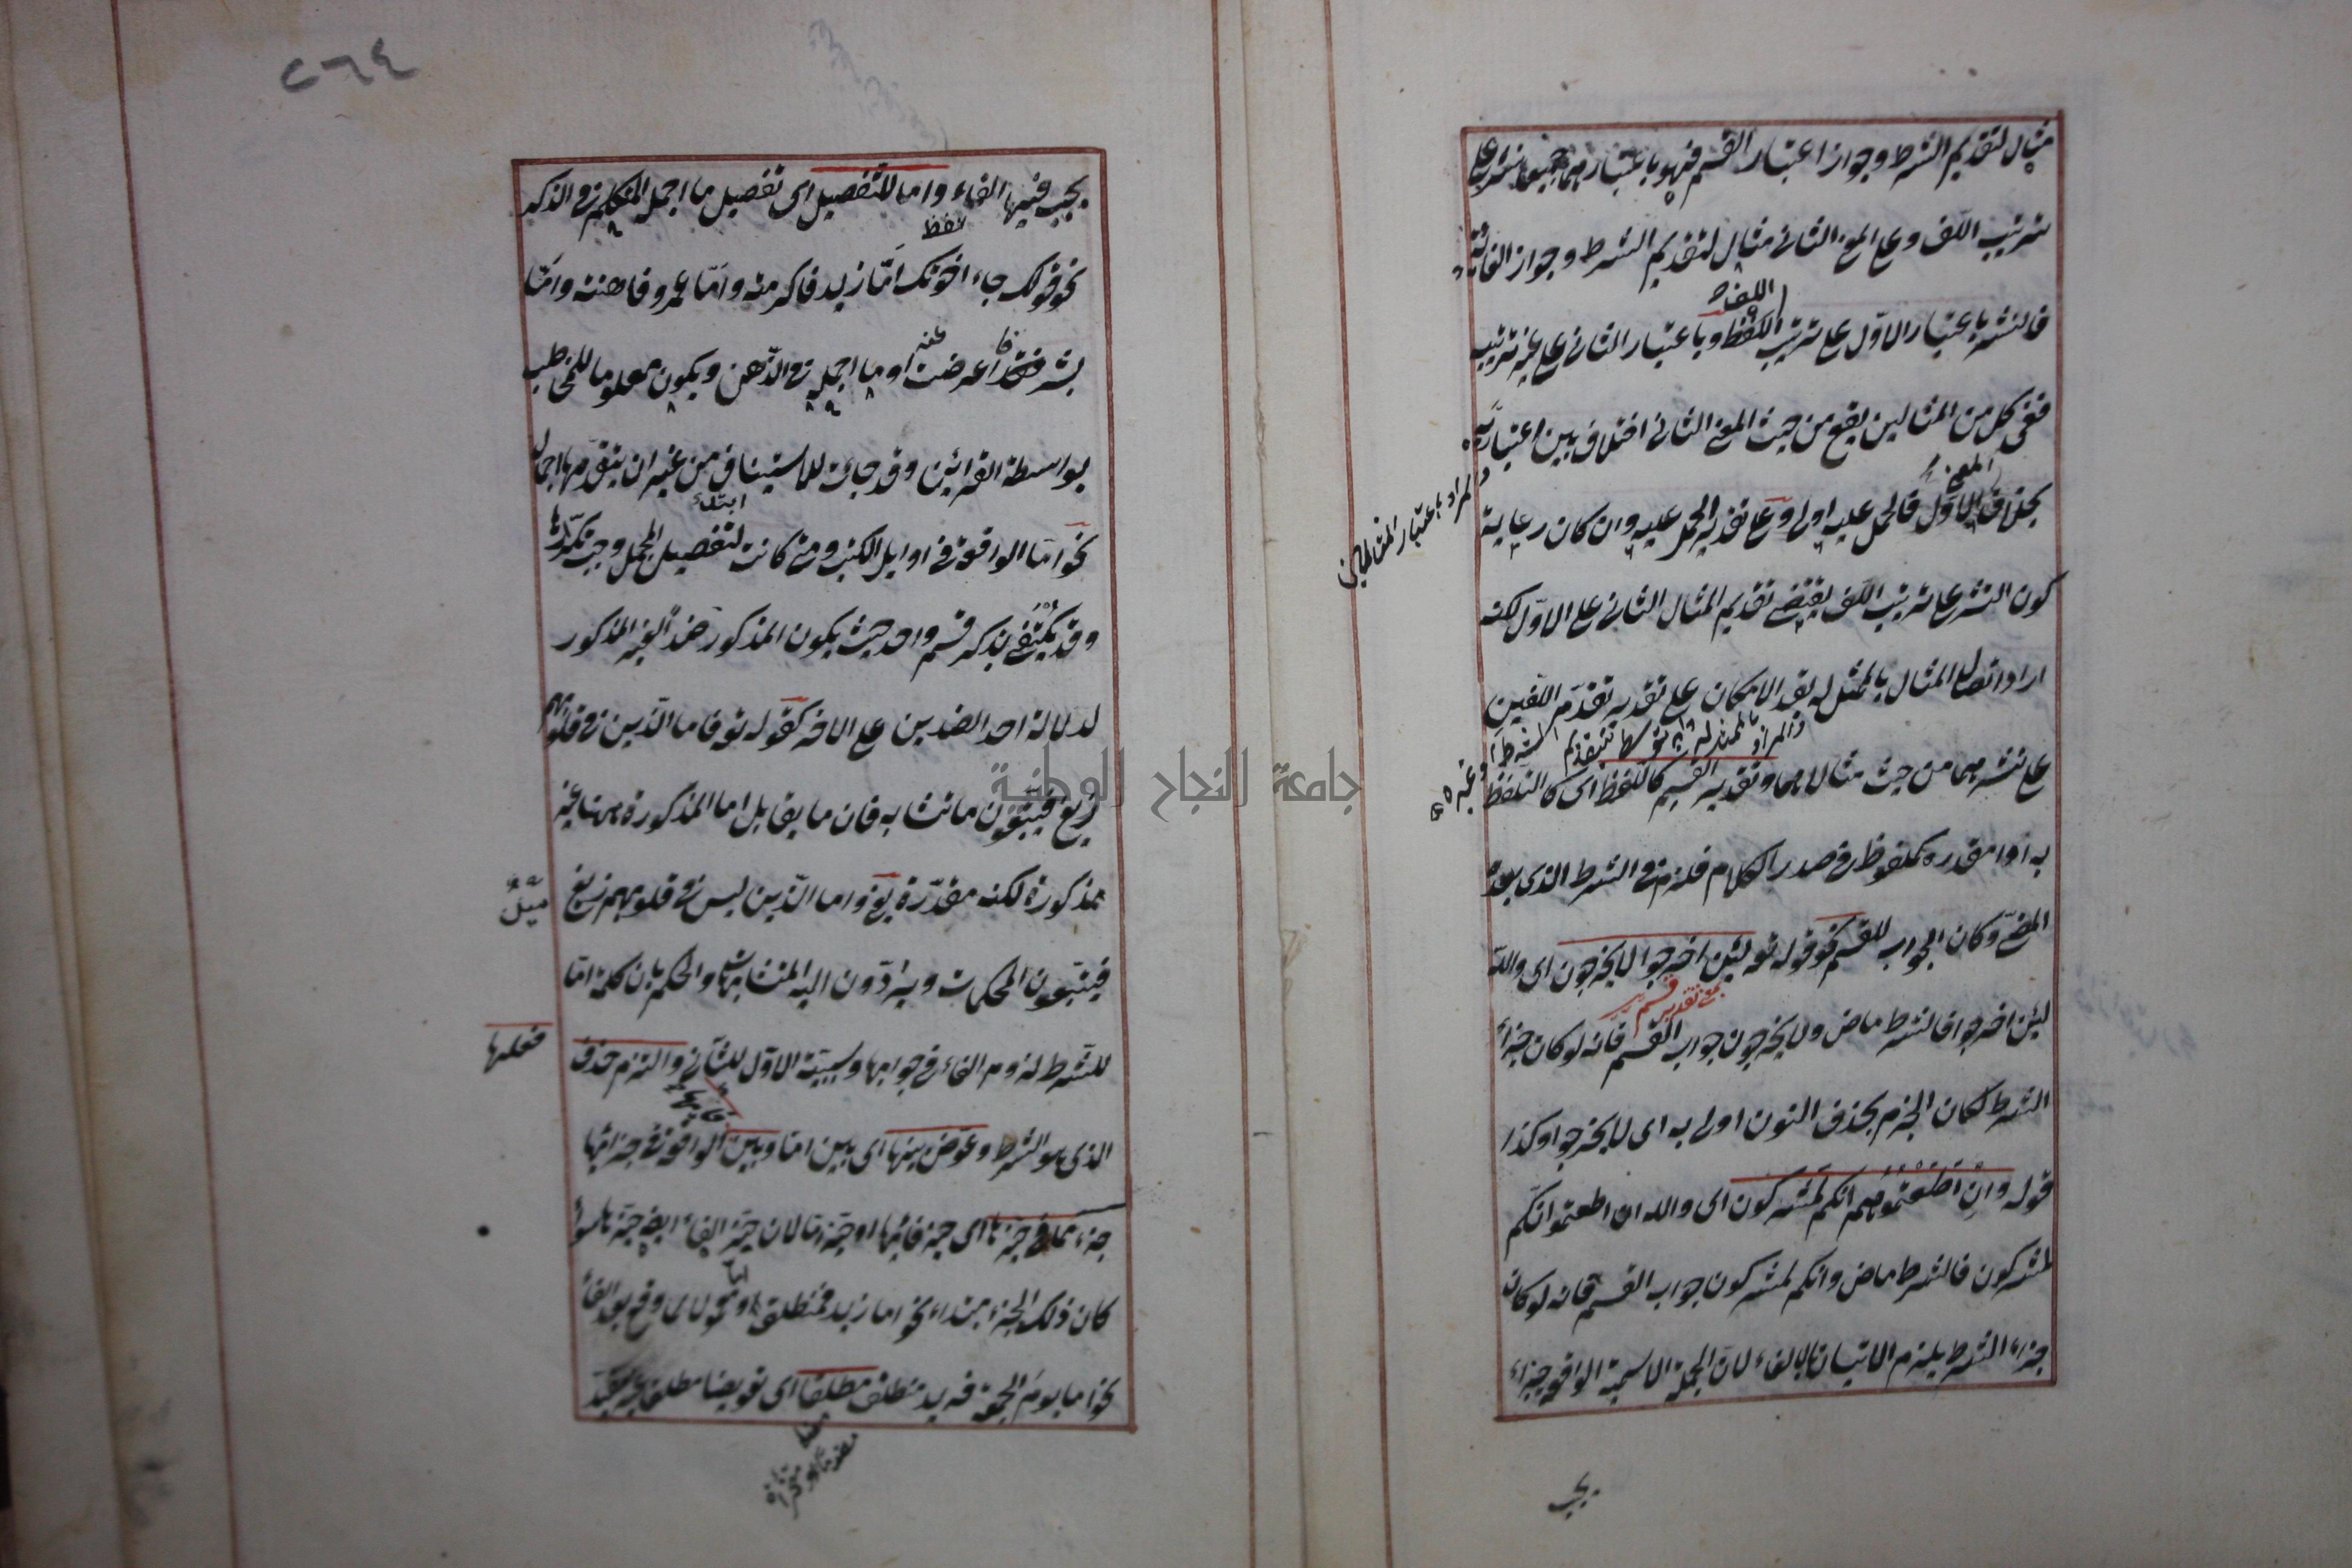 مثال لتقديم الشرط وجواز اعتبار القسم فهو باعتبارهما جميعا نشر على
ترتيب اللف وعلى المعنى الثاني مثال لتقديم الشرط وجواز الغائه
فالنشر باعتبار الاول على ترتيب اللفظ وباعتبار الثاني على غير ترتيب
اللف
ففي كل من المثالين يقع من حيث المعنى الثاني اختلاف بين اعتباريه
بخلاف الاول فالحمل عليه اولى وعلى تقدير الحمل عليه وان كان رعاية
المعنى
كون النشر على ترتيب اللف يقتضي تقديم المثال الثاني على الاول لكنه
اراد اتصال المثال بالممثل له بقدر الامكان على تقدير تقدم اللفين
على نشرهما من حيث مثالاهما وتقدير القسم كاللفظ اى كالتلفظ
به اذ المقدر كملفوظ في صدر الكلام فلزم في الشرط الذي بعده
المضي وكان الجواب للقسم نحو قوله تع لئن اخرجوا لا يخرجون اى والله
لئن اخرجوا فالشرط ماض ولا يخرجون جواب القسم فانه لو كان جزاء
الشرط لكان الجزم بحذف النون اولى به اى لا يخرجوا وكذا
قوله وان اطعتموهم انكم لمشركون اى والله ان اطعتموا انكم
لمشركون فالشرط ماض وانكم لمشركون جواب القسم فانه لو كان
جزاء الشرط يلزم الاتيان بالفاء لان الجملة الاسمية الواقعة جزاء
يجب
٢٦٤
يجب فيها الفاء واما للتفصيل اى تفصيل ما اجمل المتكلم في الذكر
لفظ
نحو قولك جاء اخوتك اما زيد فاكرمته واما عمرو فاهنته واما
بشر فقد اعرضت او ما اجمل في الذهن ويكون معلوما للمخاطب
عنه
بواسطة القرائن وقد جاءت للاستيناف من غير ان يتقدمها اجمال
نحو اما الواقعة في اوايل الكتب ومتى كانت لتفصيل المجمل وجب تكرارها
وقد يكتفى بذكر قسم واحد حيث يكون المذكور ضدا لغير المذكور
لدلالة احد الضدين على الاخر كقوله تع فاما الذين في قلوبهم
زيغ فيتبعون ما تشابه فان ما يقابل اما المذكورة ههنا غير
مذكورة لكنه مقدرة يعني واما الذين ليس في قلوبهم زيغ
ميل
فيتبعون المحكمات ويردون اليه المتشابهات والحكم بان كلمة اما
للشرط لزوم الفاء في جوابها وسببية الاول للثاني والتزم حذف
فعلها
الذي هو الشرط وعوض بينها اى بين اما وبين الواقعة في جزائها
فائها
جزء مما في حيزها اى حيز فائها او حيز اما لان حيز الفاء ايضا حيزها سواء
كان ذلك الجزء مبتداء نحو اما زيد فمنطلق او معمولا لما وقع بعد الفاء
نحو اما يوم الجمعة فزيد منطلق مطلقا اى تعويضا مطلقا غير مقيد
جامعة النجاح الوطنية